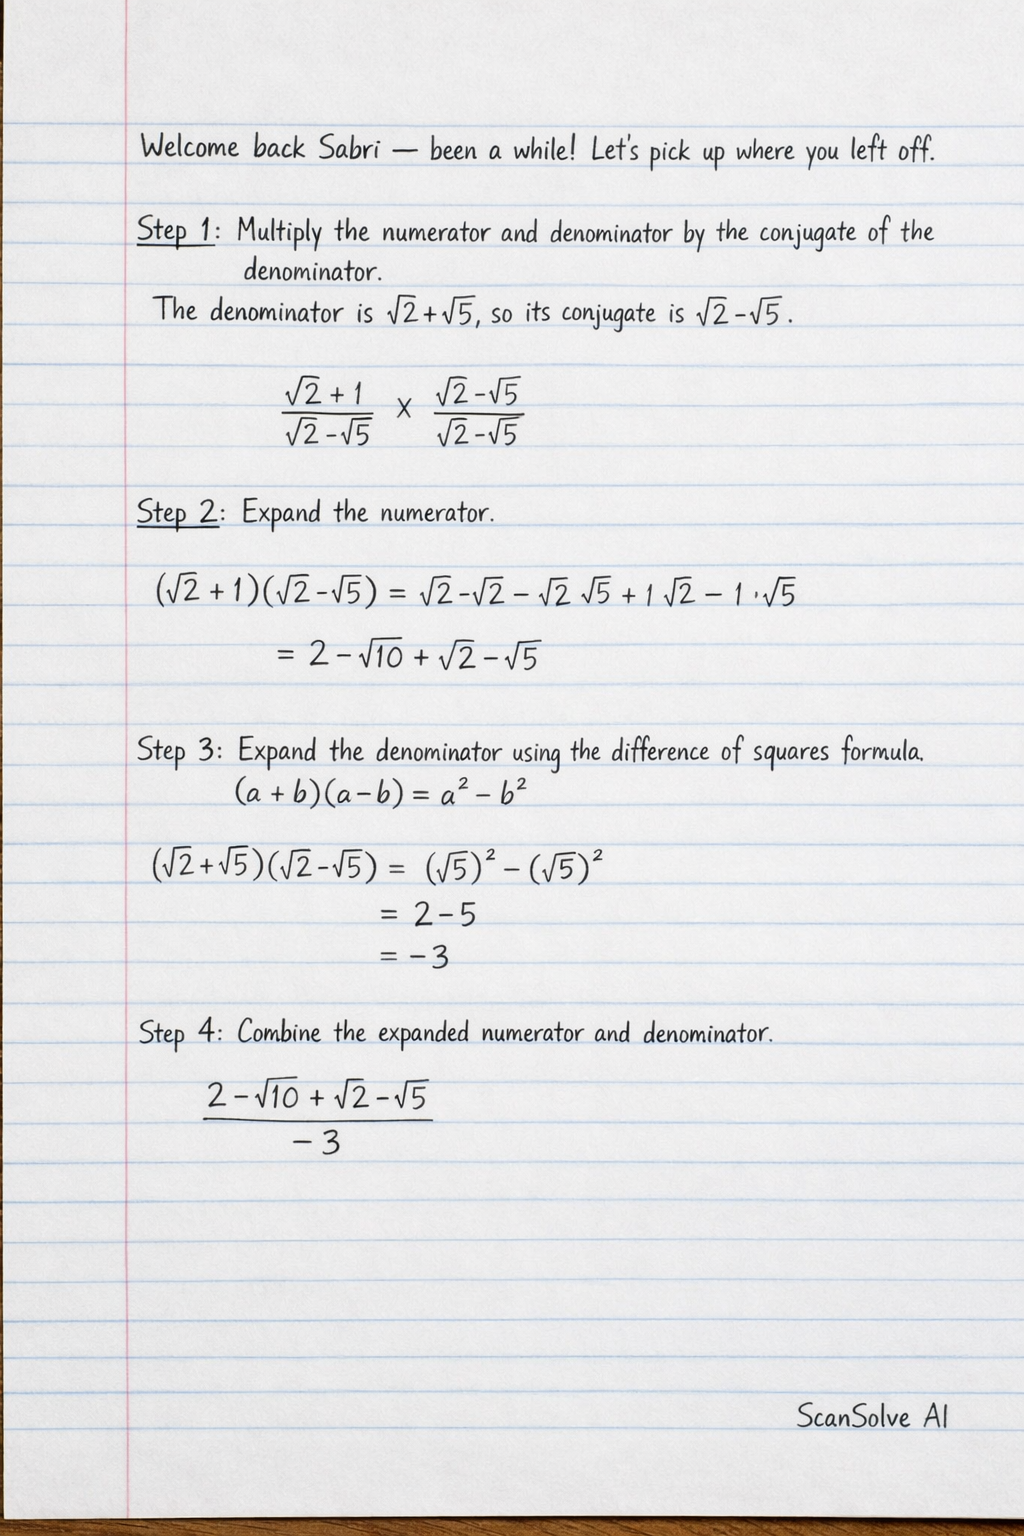 Welcome back Sabri — been a while! Let's pick up where you left off.
Step 1: Multiply the numerator and denominator by the conjugate of the
denominator.
The denominator is √2+√5, so its conjugate is √2-√5.
√2 + 1 √2-√5
×
√2-√5 √2-√5
Step 2: Expand the numerator.
(√2 + 1)(√2-√5) = √2-√2 - √2 √5 + 1 √2 - 1·√5
= 2-√10 + √2-√5
Step 3: Expand the denominator using the difference of squares formula.
(a + b)(a-b) = a² - b²
(√2+√5)(√2-√5) = (√5)² - (√5)²
= 2-5
= -3
Step 4: Combine the expanded numerator and denominator.
2-√10 + √2-√5
-3
ScanSolve AI